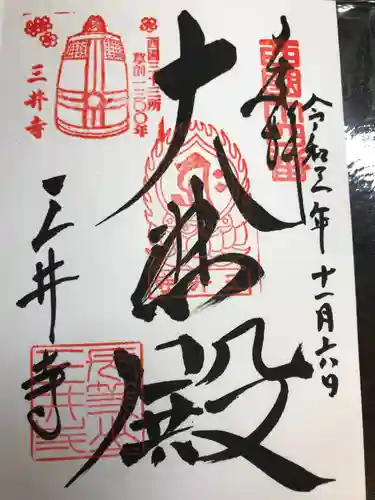 奉拝
令和三年十一月六日
大悲殿
西国三十三所
草創一三〇〇年
三井寺
三井寺